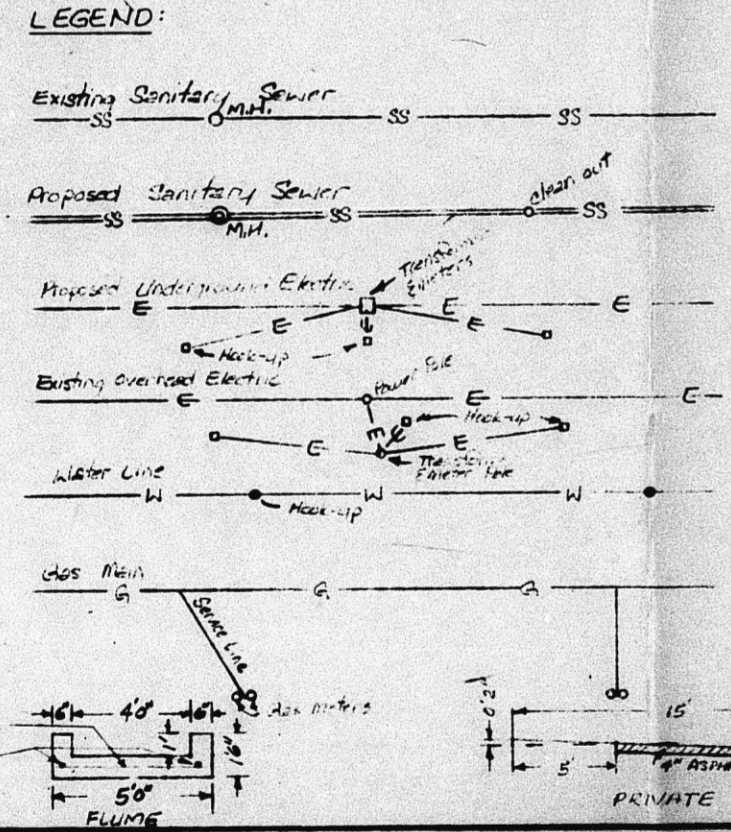 LEGEND:
Existing Sanitary Sewer
SS M.H. SS SS
Proposed Sanitary Sewer
Clean out
SS M.H. SS SS
Proposed Underground Electric
Transformer
& Meters
E E E
E E E
Hook-up
Existing Overhead Electric
Power Pole
E E E
Hook-up
E E E E
Transformer
& Meter Pole
Water Line
W W W
Hook-up
Gas Main
G G G
Service Line
Gas Meters
6" 4'0" 6"
1'
1'6"
5'0"
FLUME
0'2"
15'
5'
4" ASPHA
PRIVATE